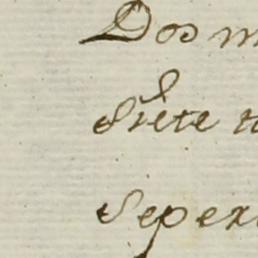 Dos m
Siete
Sepex